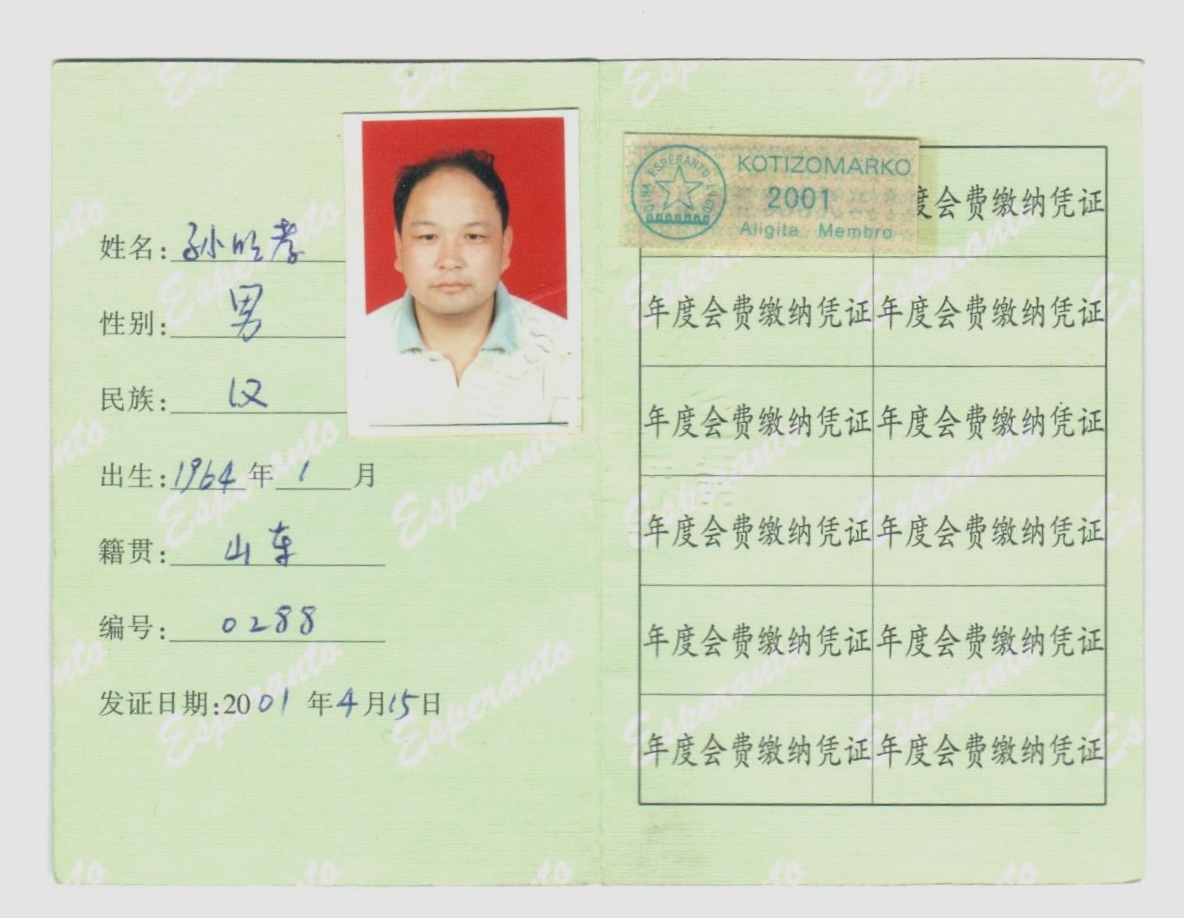 姓名:孙明孝
性别:男
民族:汉
出生:1964年1月
籍贯:山东
编号:0288
发证日期:2001年4月15日
KOTIZOMARKO
2001
Aligita Membro
ESPERANTO-LIGO
度会费缴纳凭证
年度会费缴纳凭证 年度会费缴纳凭证
年度会费缴纳凭证 年度会费缴纳凭证
年度会费缴纳凭证 年度会费缴纳凭证
年度会费缴纳凭证 年度会费缴纳凭证
年度会费缴纳凭证 年度会费缴纳凭证
Esperanto